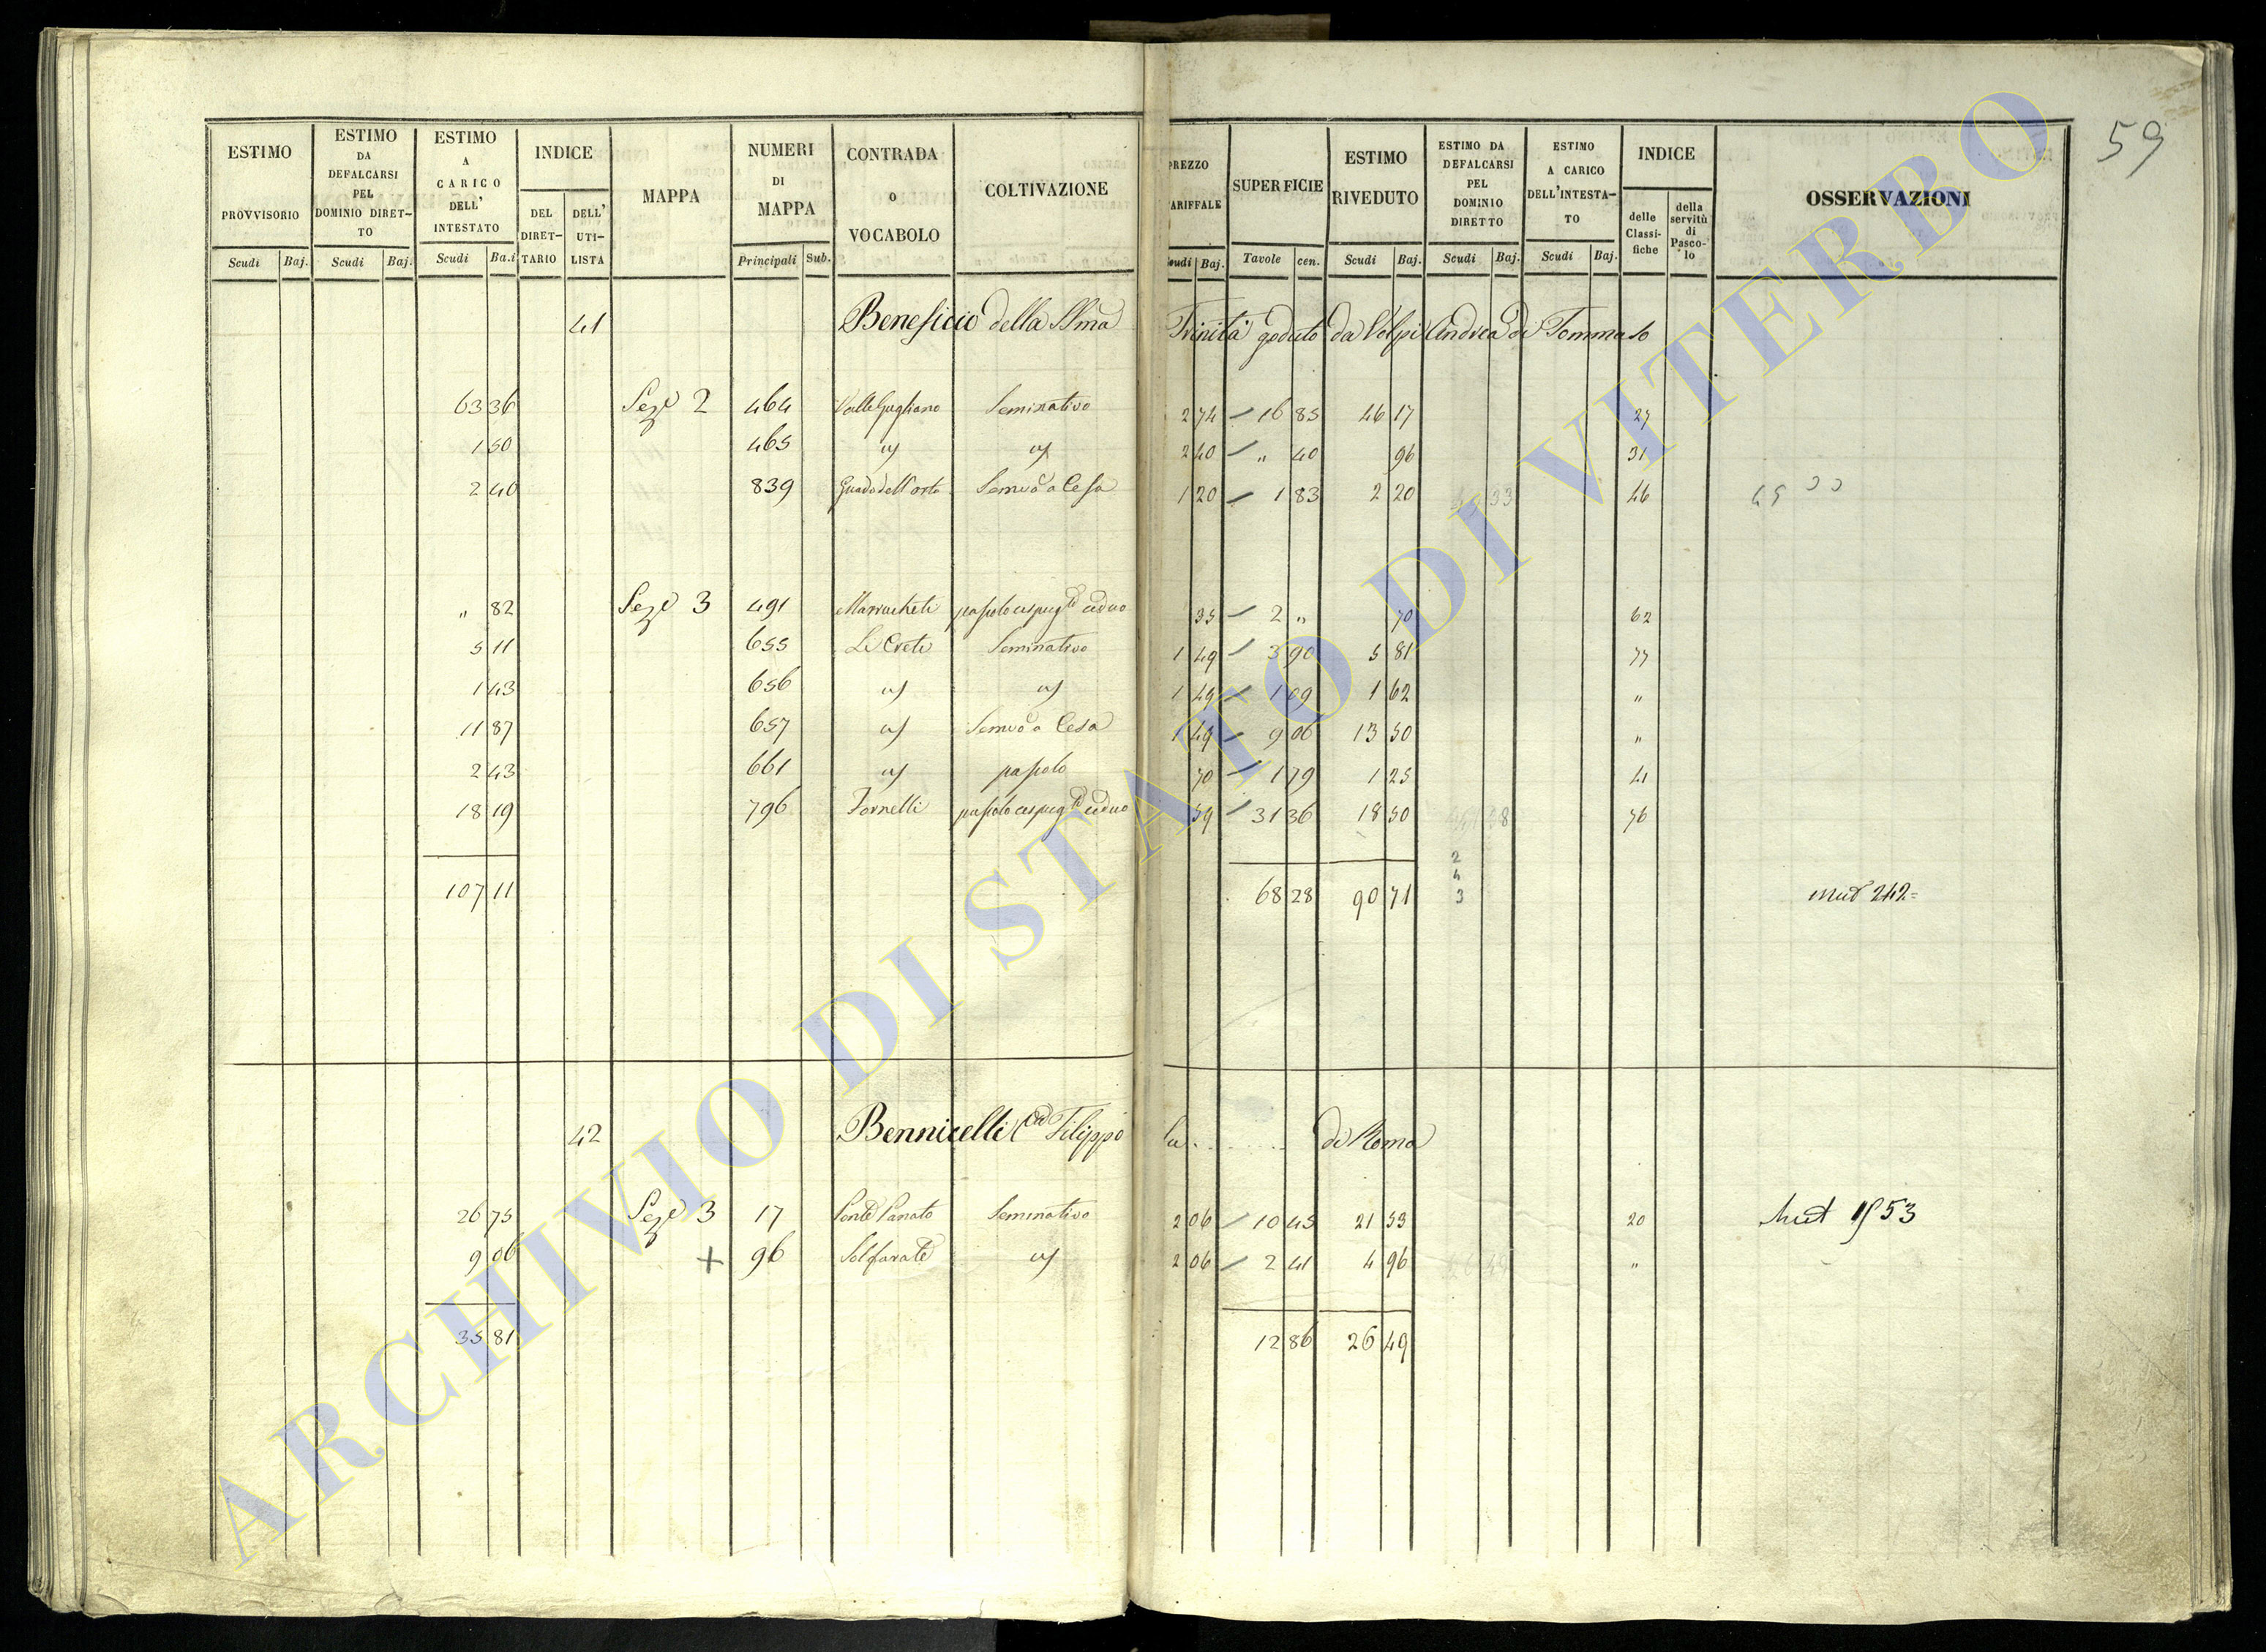 59
ESTIMO PROVVISORIO Scudi Baj.
ESTIMO DA DEFALCARSI PEL DOMINIO DIRET-TO Scudi Baj.
ESTIMO A CARICO DELL' INTESTATO Scudi Ba.i
INDICE DEL DIRET-TARIO DELL' UTI-LISTA
MAPPA
NUMERI DI MAPPA Principali Sub.
CONTRADA o VOCABOLO
COLTIVAZIONE
PREZZO TARIFFALE Scudi Baj.
SUPERFICIE Tavole cen.
ESTIMO RIVEDUTO Scudi Baj.
ESTIMO DA DEFALCARSI PEL DOMINIO DIRETTO Scudi Baj.
ESTIMO A CARICO DELL'INTESTA-TO Scudi Baj.
INDICE delle Classi-fiche della servitù di Pasco-lo
OSSERVAZIONI
41 Beneficio della SSma Trinità goduto da Volpi Andrea di Tommaso
63 36 Seze 2 464 Valle Gagliano Seminativo 2 74 16 85 46 17 27
1 50 465 " " 2 40 " 40 96 31
2 40 839 Guado dell'orto Semvo a Cesa 1 20 1 83 2 20 46
" 82 Seze 3 491 Marrucheti pascolo cespugto ceduo 35 2 " 70 62
5 11 655 Le Crete Seminativo 1 49 3 90 5 81 77
1 43 656 " " 1 49 1 09 1 62 "
11 87 657 " Semvo a Cesa 1 49 9 06 13 50 "
2 43 661 " pascolo 70 1 79 1 25 41
18 19 796 Fornelli pascolo cespugto ceduo 59 31 36 18 50 76
107 11 68 28 90 71 mut 242=
2
4
3
42 Bennicelli Filippo di Roma
26 75 Seze 3 17 Seminativo 2 06 10 45 21 53 20 Mut 1953
9 06 + 96 Solfarate " 2 06 2 41 4 96 "
35 81 12 86 26 49
ARCHIVIO DI STATO DI VITERBO